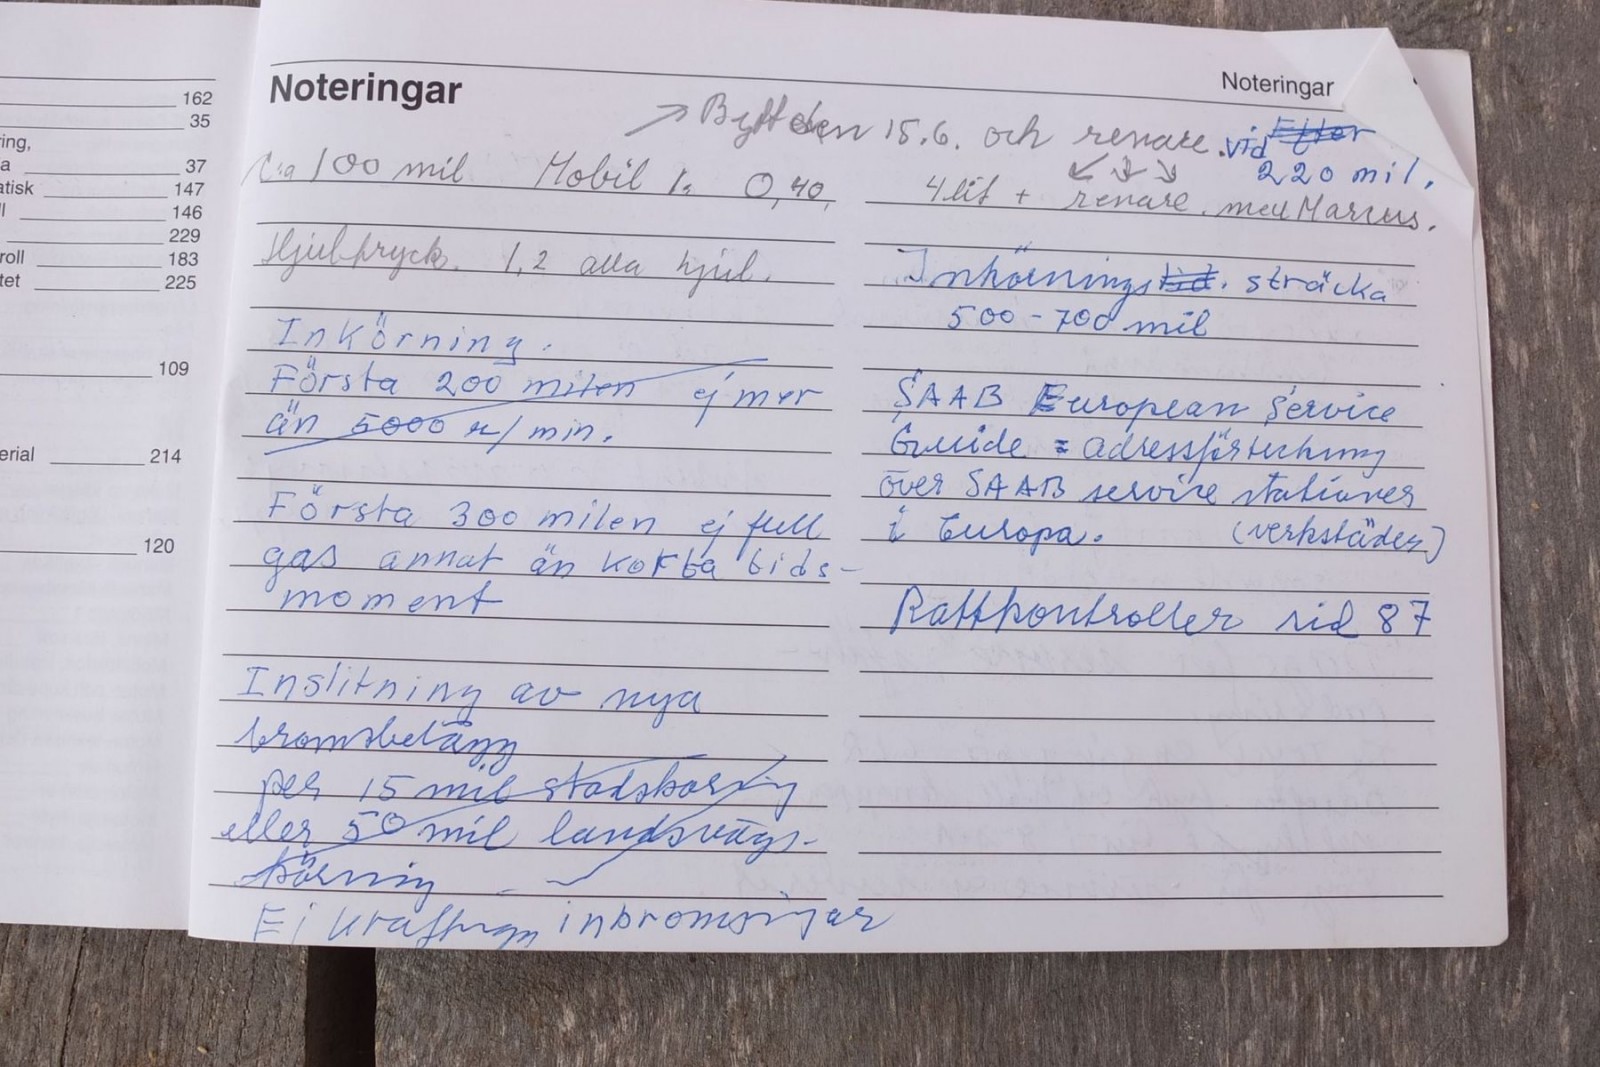 162
35
ring,
a 37
atisk 147
ll 146
229
roll 183
tet 225
109
erial 214
120
Noteringar
Noteringar
→ Bytt den 15.6. och renare. vid Efter
220 mil.
100 mil Mobil 1. 0,40,
4 lit + renare. med Marcus.
Hjultryck. 1,2 alla hjul.
Inkörning.
Första 200 milen ej mer
än 5000 r/min.
Första 300 milen ej full
gas annat än korta tids-
moment
Inslitning av nya
bromsbelägg
per 15 mil stadskörning
eller 50 mil landsvägs-
körning
Ej kraftiga inbromsningar
Inkörningstid. sträcka
500-700 mil
SAAB European Service
Guide = adressförteckning
över SAAB service stationer
i Europa. (verkstäder)
Rattkontroller sid 87